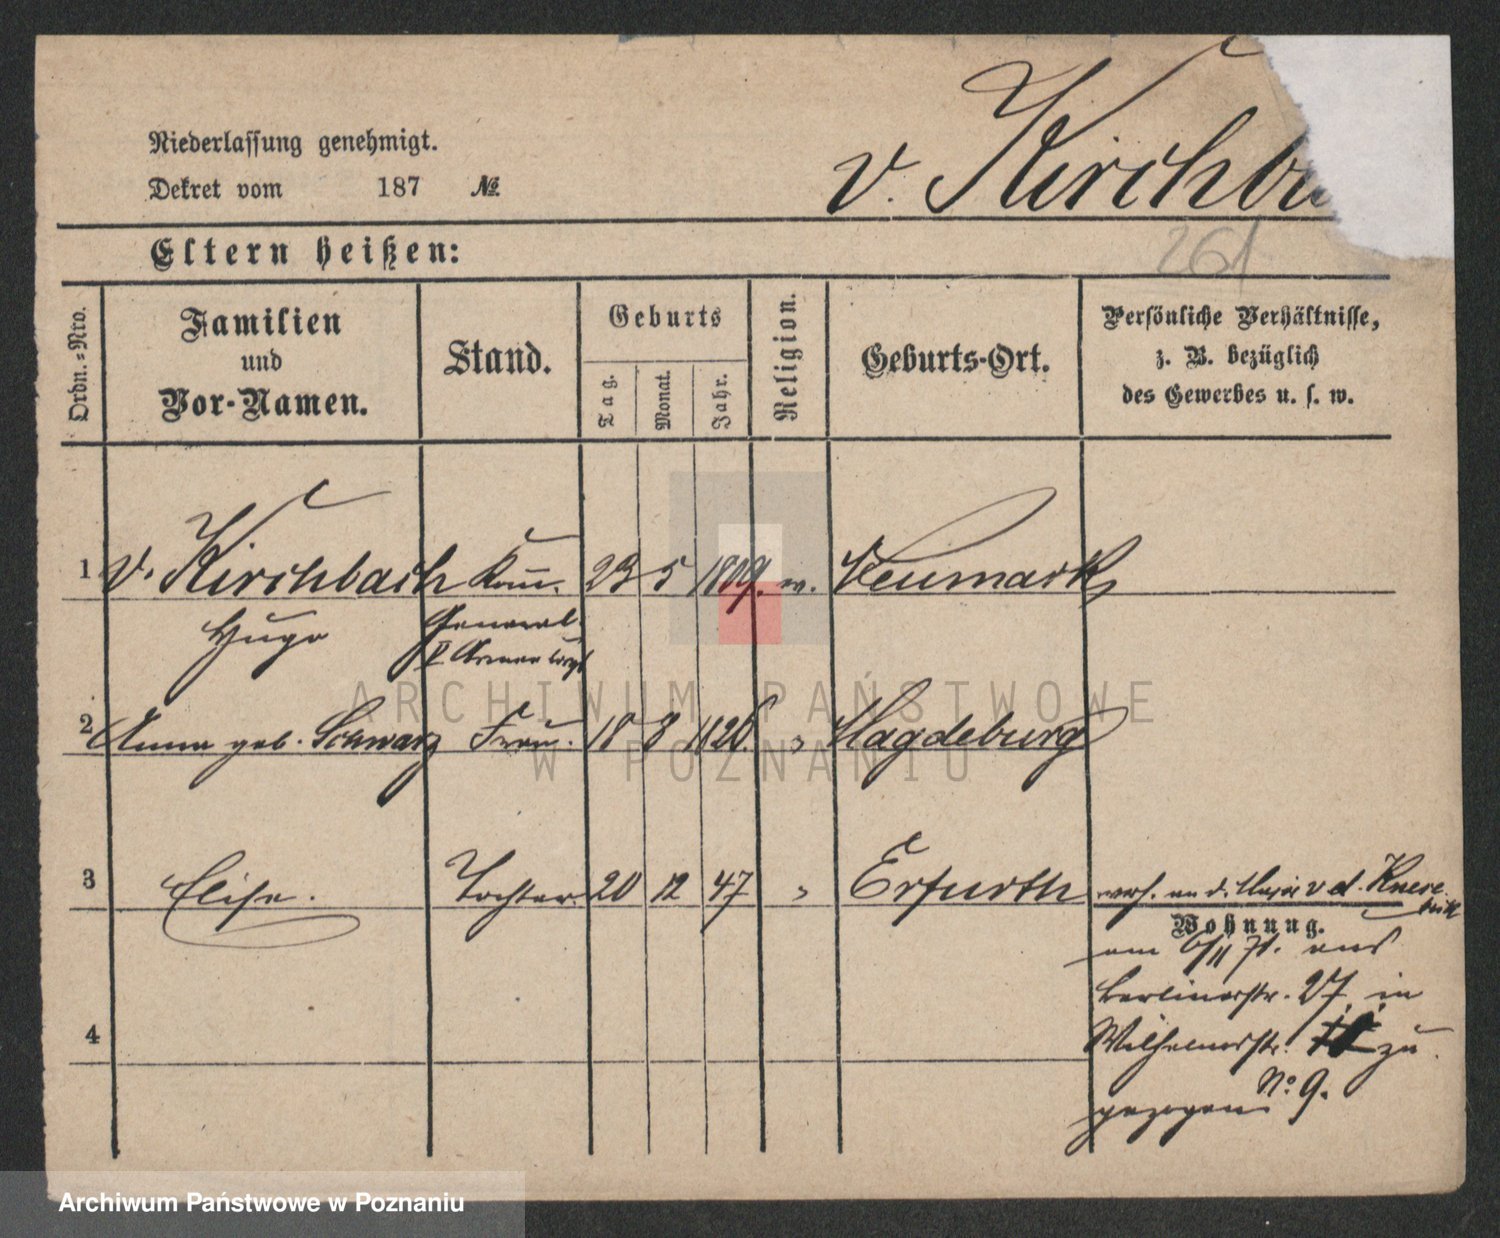 v. Kirchba
Niederlassung genehmigt.
Dekret vom 187 №
261
Eltern heißen:
Ordn.=Nro.
Familien
und
Vor-Namen.
Stand.
Geburts
Tag.
Monat.
Jahr.
Religion.
Geburts-Ort.
Persönliche Verhältnisse,
z. B. bezüglich
des Gewerbes u. s. w.
1 v. Kirchbach Kom. 23 5 1809. Neumark
Hugo General
V Armee Corps
2 Anna geb. Schwarz Frau. 18 8 1826. " Magdeburg
3 Elise. Tochter 20 12 47 " Erfurth verh. an d. Major v d. Knese
beck
Wohnung.
am 6/11 71. aus
Berlinerstr. 27 in
Wilhelmsstr. zu
No 9.
gezogen
4
ARCHIWUM PAŃSTWOWE
W POZNANIU
Archiwum Państwowe w Poznaniu